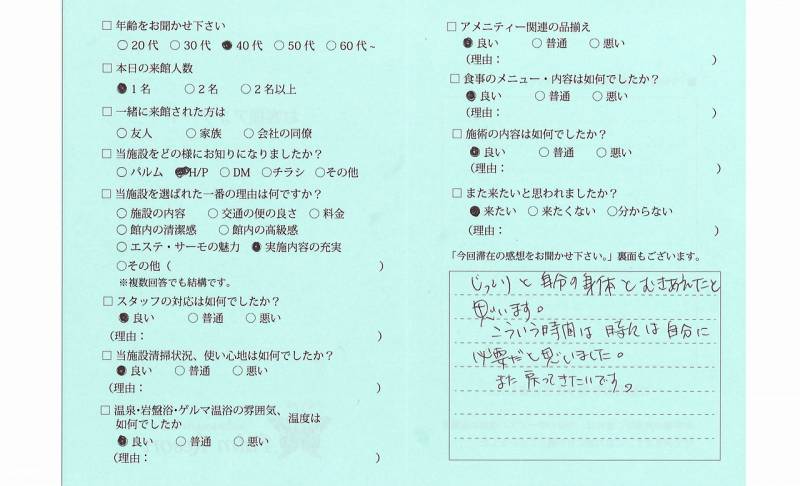 □ 年齢をお聞かせ下さい
○ 20代 ○ 30代 ● 40代 ○ 50代 ○ 60代~
□ 本日の来館人数
● 1名 ○ 2名 ○ 2名以上
□ 一緒に来館された方は
○ 友人 ○ 家族 ○ 会社の同僚
□ 当施設をどの様にお知りになりましたか?
○ パルム ● H/P ○ DM ○チラシ ○その他
□ 当施設を選ばれた一番の理由は何ですか?
○ 施設の内容 ○ 交通の便の良さ ○ 料金
○ 館内の清潔感 ○ 館内の高級感
○ エステ・サーモの魅力 ● 実施内容の充実
○その他( )
※複数回答でも結構です。
□ スタッフの対応は如何でしたか?
● 良い ○ 普通 ○ 悪い
(理由: )
□ 当施設清掃状況、使い心地は如何でしたか?
● 良い ○ 普通 ○ 悪い
(理由: )
□ 温泉・岩盤浴・ゲルマ温浴の雰囲気、温度は
如何でしたか
● 良い ○ 普通 ○ 悪い
(理由: )
□ アメニティー関連の品揃え
● 良い ○ 普通 ○ 悪い
(理由: )
□ 食事のメニュー・内容は如何でしたか?
● 良い ○ 普通 ○ 悪い
(理由: )
□ 施術の内容は如何でしたか?
● 良い ○ 普通 ○ 悪い
(理由: )
□ また来たいと思われましたか?
● 来たい ○ 来たくない ○分からない
(理由: )
「今回滞在の感想をお聞かせ下さい。」裏面もございます。
じっくりと自分の身体とむきあえたと
思います。
こういう時間は時には自分に
必要だと思いました。
また戻ってきたいです。